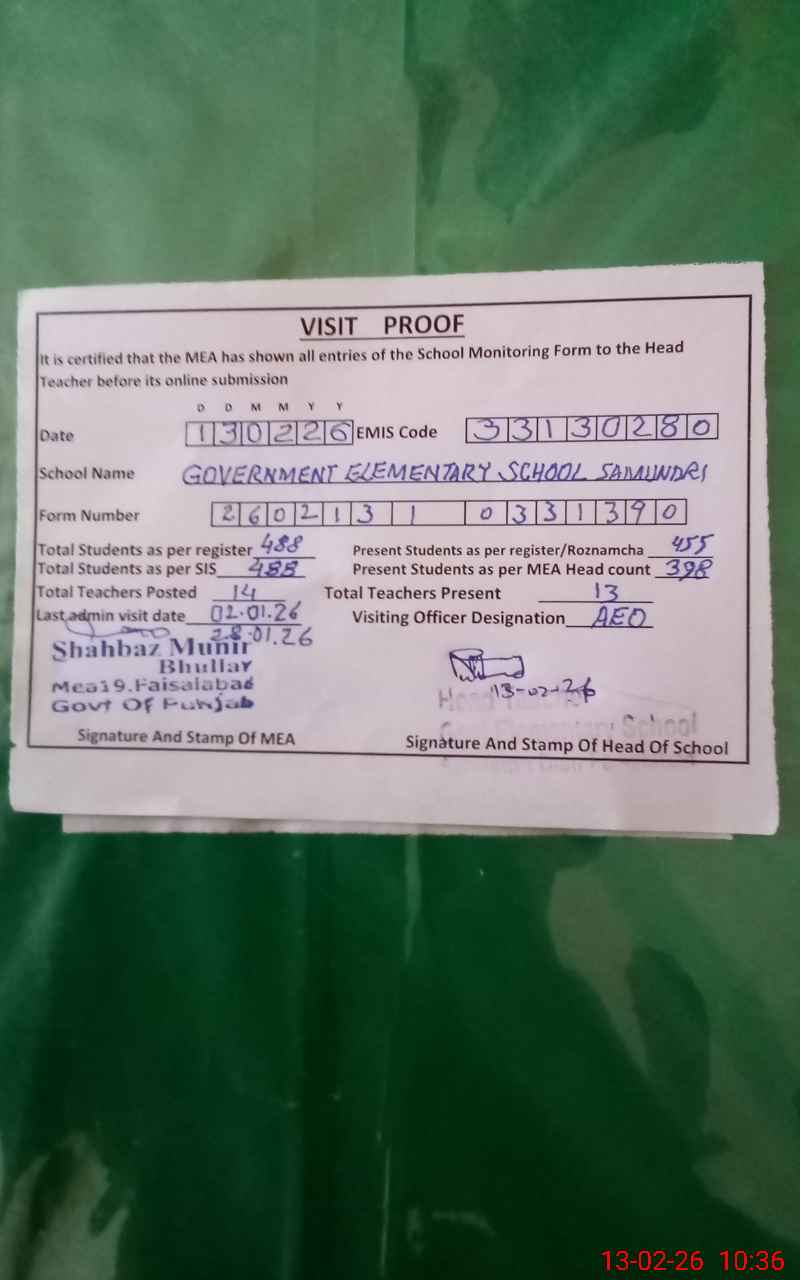 VISIT PROOF
It is certified that the MEA has shown all entries of the School Monitoring Form to the Head
Teacher before its online submission
D D M M Y Y
Date 130226 EMIS Code 33130280
School Name GOVERNMENT ELEMENTARY SCHOOL SAMUNDRI
Form Number 2602131 0331390
Total Students as per register 488 Present Students as per register/Roznamcha 455
Total Students as per SIS 488 Present Students as per MEA Head count 398
Total Teachers Posted 14 Total Teachers Present 13
Last admin visit date 02.01.26 Visiting Officer Designation AEO
28.01.26
Shahbaz Munir
Bhullar
Mea19.Faisalabad
Govt Of Punjab
13-02-26
Head
Elementary School
Signature And Stamp Of MEA Signature And Stamp Of Head Of School
13-02-26 10:36